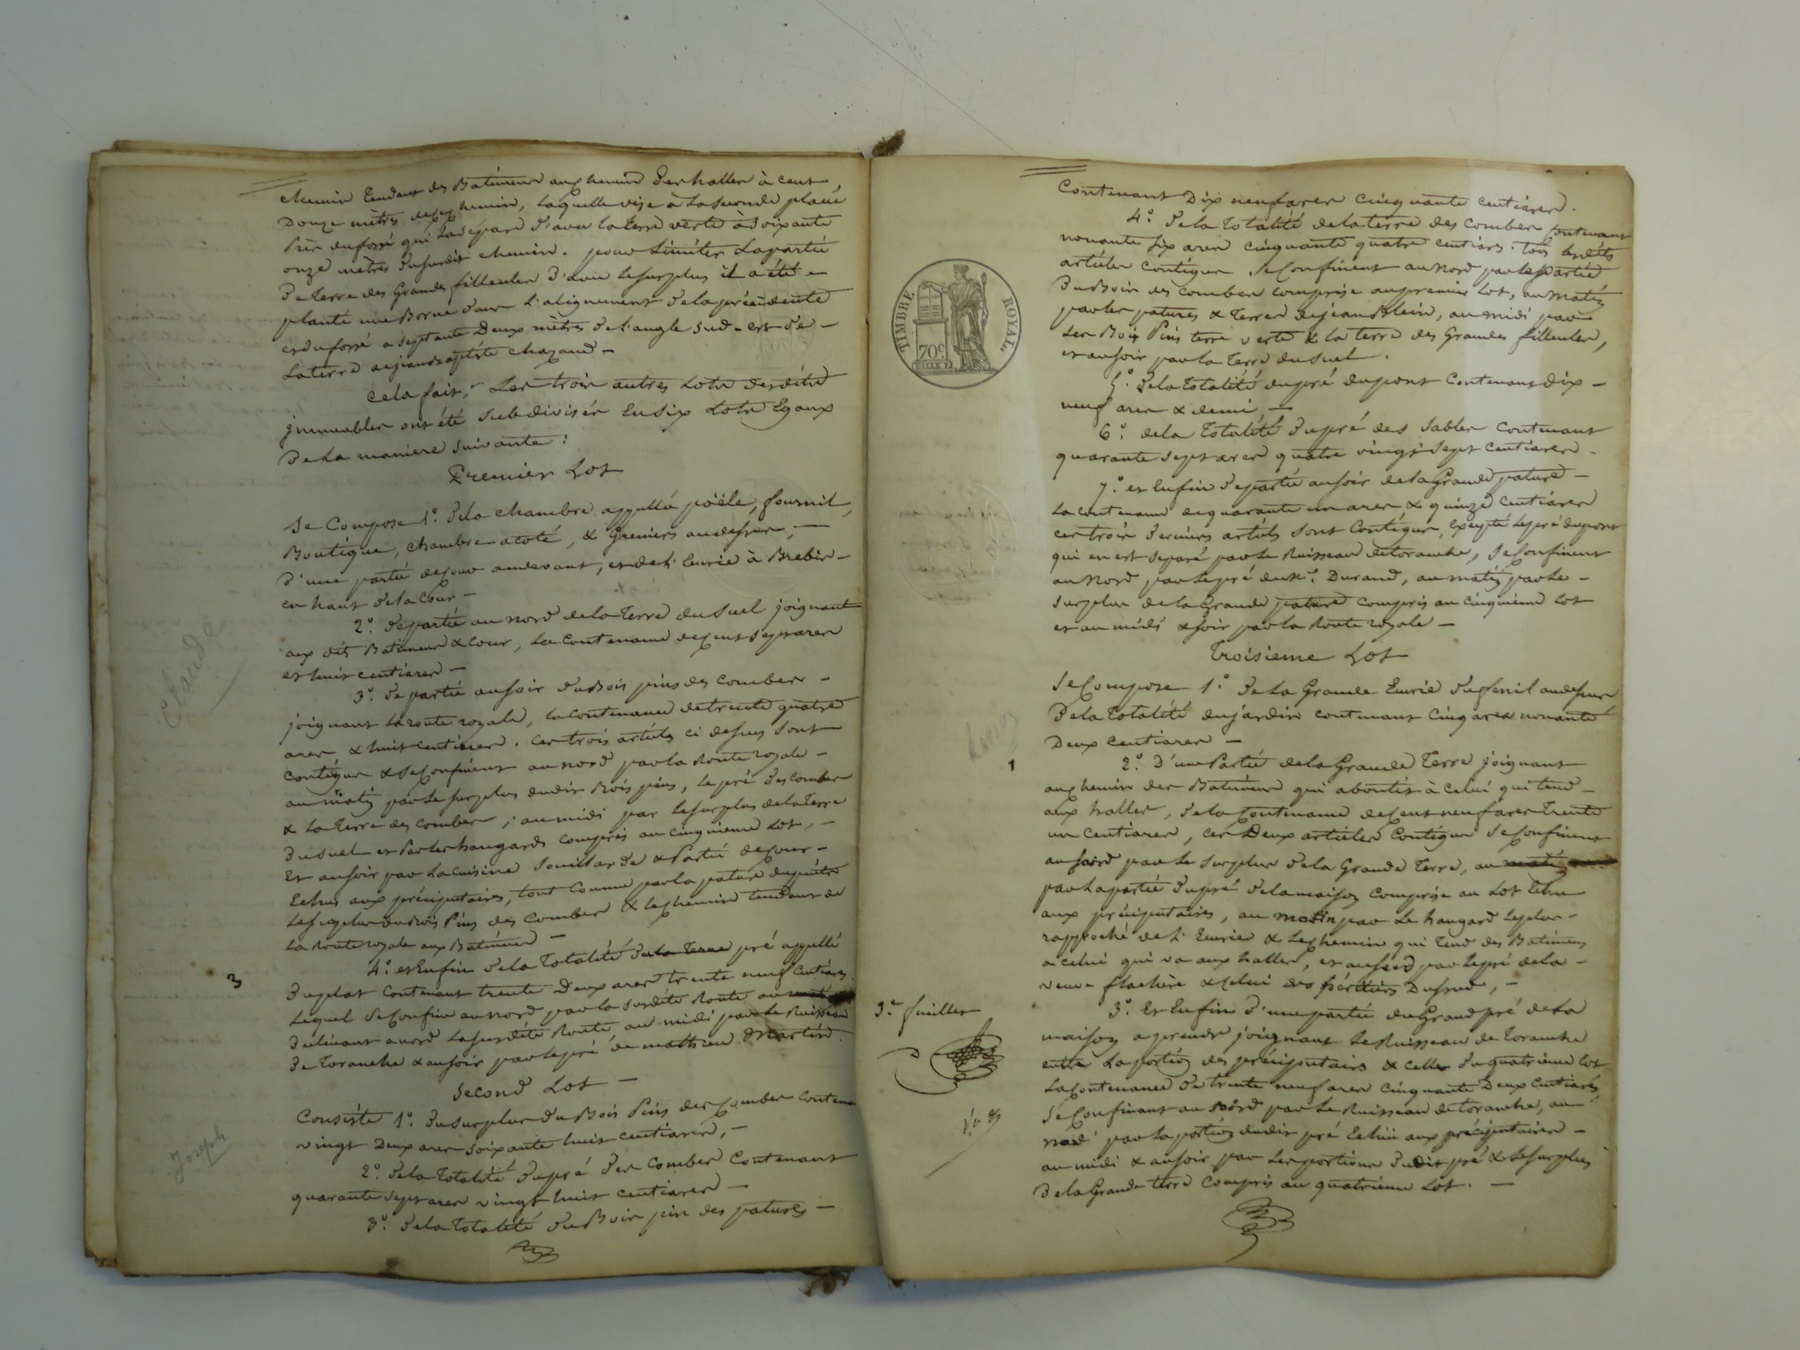 chemin tendant des Batimens au chemin des halles à cent
Douze mètres dudit chemin, laquelle vise à la seconde placée
Près du fossé qui la sépare d'avec la terre verte à soixante
onze mètres dususdit chemin. pour Limiter la partie
de terre des Grandes filleules d'avec le surplus il a été
planté une Borne dans l'alignement de la précédente
et du fossé a septante Deux mètres de l'angle sud-est de
La terre a jean Baptiste Chazaud
Cela fait, Les trois autres Lots desdits
jmmeubles ont été subdivisés En six Lots Egaux
De la maniere suivante :
Premier Lot
Se Compose 1.° de la chambre appellée poële, fournil,
Boutique, chambre a coté, & Greniers audessus,
D'une partie de cour audevant, et de l'Ecurie à Brebis
en haut de la Cour
2.° de partie au nord de la Terre du Suel joignant
aux dits Batimens & Cour, La Contenance de cent sept ares
et huit centiares
3.° de partie au soir du Bois pins des combes
joignant la route royale, la contenance de trente quatre
ares & huit centiares. Ces trois articles ci dessus sont
contigus & se Confinent au nord par la Route royale
au matin par le surplus dudit Bois pins, le pré des combes
& La terre des combes, au midi par le surplus de la Terre
du suel et Par les hangards compris au cinquieme Lot,
Et au soir par La cuisine Souillarde & Partie de cour
Echus aux précipuitaires, tout comme par la pature
Le surplus du Bois Pins des Combes & le chemin tendant de
La Route royale aux Batimens
4.° et Enfin de la Totalité de la Terre pré appellé
Duplat contenant trente Deux ares trente neuf Centiares
Lequel se Confine au nord par la susdite Route au
au nord La susdite Route, au midi par le Ruisseau
de Toranche & au soir par le pré de mathieu Martin.
Second Lot
Consiste 1.° du surplus du Bois Pins des Combes contenant
vingt Deux ares soixante huit centiares,
2.° de la Totalité du pré des Combes Contenant
quarante sept ares vingt huit centiares
3.° de la Totalité du Bois pin des patures
Claude
3
Joseph
Contenant Dix neuf ares Cinquante centiares.
4.° de la Totalité de la terre des combes contenant
nonante six ares cinquante quatre centiares. Tous lesdits
articles contigus se Confinent au nord par la partie
Du Bois des combes comprise au premier Lot, au matin
par les patures & Terres de jean Blein, au midi par
Les Bois Pins terre verte & la terre des Grandes filleules,
et au soir par la Terre du suel.
5.° de la Totalité du pré Dupont Contenant dix
neuf ares & demi
6.° de la Totalité du pré des Sables Contenant
quarante sept ares quatre vingt sept centiares.
7.° et Enfin de partie au soir de la Grande pature
La contenance de quarante un ares & quinze centiares
ces trois derniers articles sont Contigus, Excepté le pré dupont
qui en est séparé par le Ruisseau de toranche, se Confinent
au Nord par le pré du Sr. Durand, au matin par le
surplus de la Grande pature compris au cinquieme Lot
et au midi & soir par la Route royale
Troisieme Lot
Se Compose 1.° de La Grande Ecurie du fenil audessus
De la Totalité du jardin contenant Cinq ares nonante
Deux centiares
2.° D'une Partie de la Grande Terre joignant
au chemin des Batimens qui aboutit à celui qui tend
aux halles, de la Contenance de Cent neuf ares Trente
un Centiares, ces Deux articles Contigus se Confinent
au soir par le surplus de la Grande Terre, au
par la partie du pré de la maison comprise au Lot Echu
aux précipuitaires, au matin par Le hangard le plus
rapproché de l'Ecurie & le Chemin qui tend des Batimens
a celui qui va aux halles, et au nord par le pré de la
veuve flachère & celui des héritiers Dufour,
3.° Et Enfin d'une partie du Grand pré de La
maison a prendre joignant le Ruisseau de toranche
entre La portion des précipuitaires & celle du quatrieme lot
La Contenance de trente neuf ares cinquante Deux Centiares
se Confinant au nord par Le Ruisseau de toranche, au
par la portion dudit pré Echue aux précipuitaires
au midi & au soir par Les portions dudit pré & le surplus
de la Grande terre Compris au quatrieme Lot.
TIMBRE ROYAL
70c
1
3.e feuillet